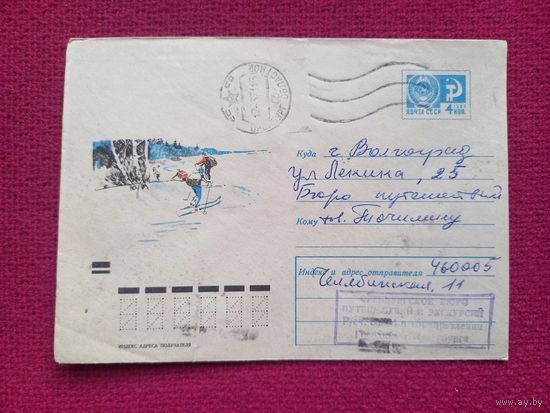 ПОЧТА СССР 4 КОП.
Куда г. Волгоград
ул Ленина, 25
Бюро путешествий
Кому
Индекс и адрес отправителя 460005
Челябинская, 11
БЮРО
И ЭКСКУРСИЙ
ИНДЕКС АДРЕСА ПОЛУЧАТЕЛЯ
www.ay.by